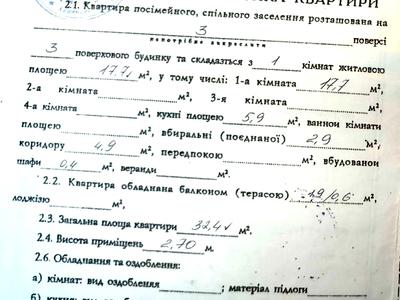 КВАРТИРИ
2.1. Квартира посімейного, спільного заселення розташована на
3 поверсі
непотрібне викреслити
3 поверхового будинку та складається з 1 кімнат житловою
площею 17,7 м², у тому числі: 1-а кімната 17,7 м²,
2-а кімната м², 3-я кімната м²,
4-а кімната м², кухні площею 5,9 м², ванної кімнати
площею м², вбиральні (поєднаної) 2,9 м²,
коридору 4,9 м², передпокою м², вбудованої
шафи 0,4 м², веранди м².
2.2. Квартира обладнана балконом (терасою) 1,9/0,6 м²,
лоджією м²,
2.3. Загальна площа квартири 32,4 м².
2.4. Висота приміщень 2,70 м.
2.6. Обладнання та оздоблення:
а) кімнат: вид оздоблення ; матеріал підлоги